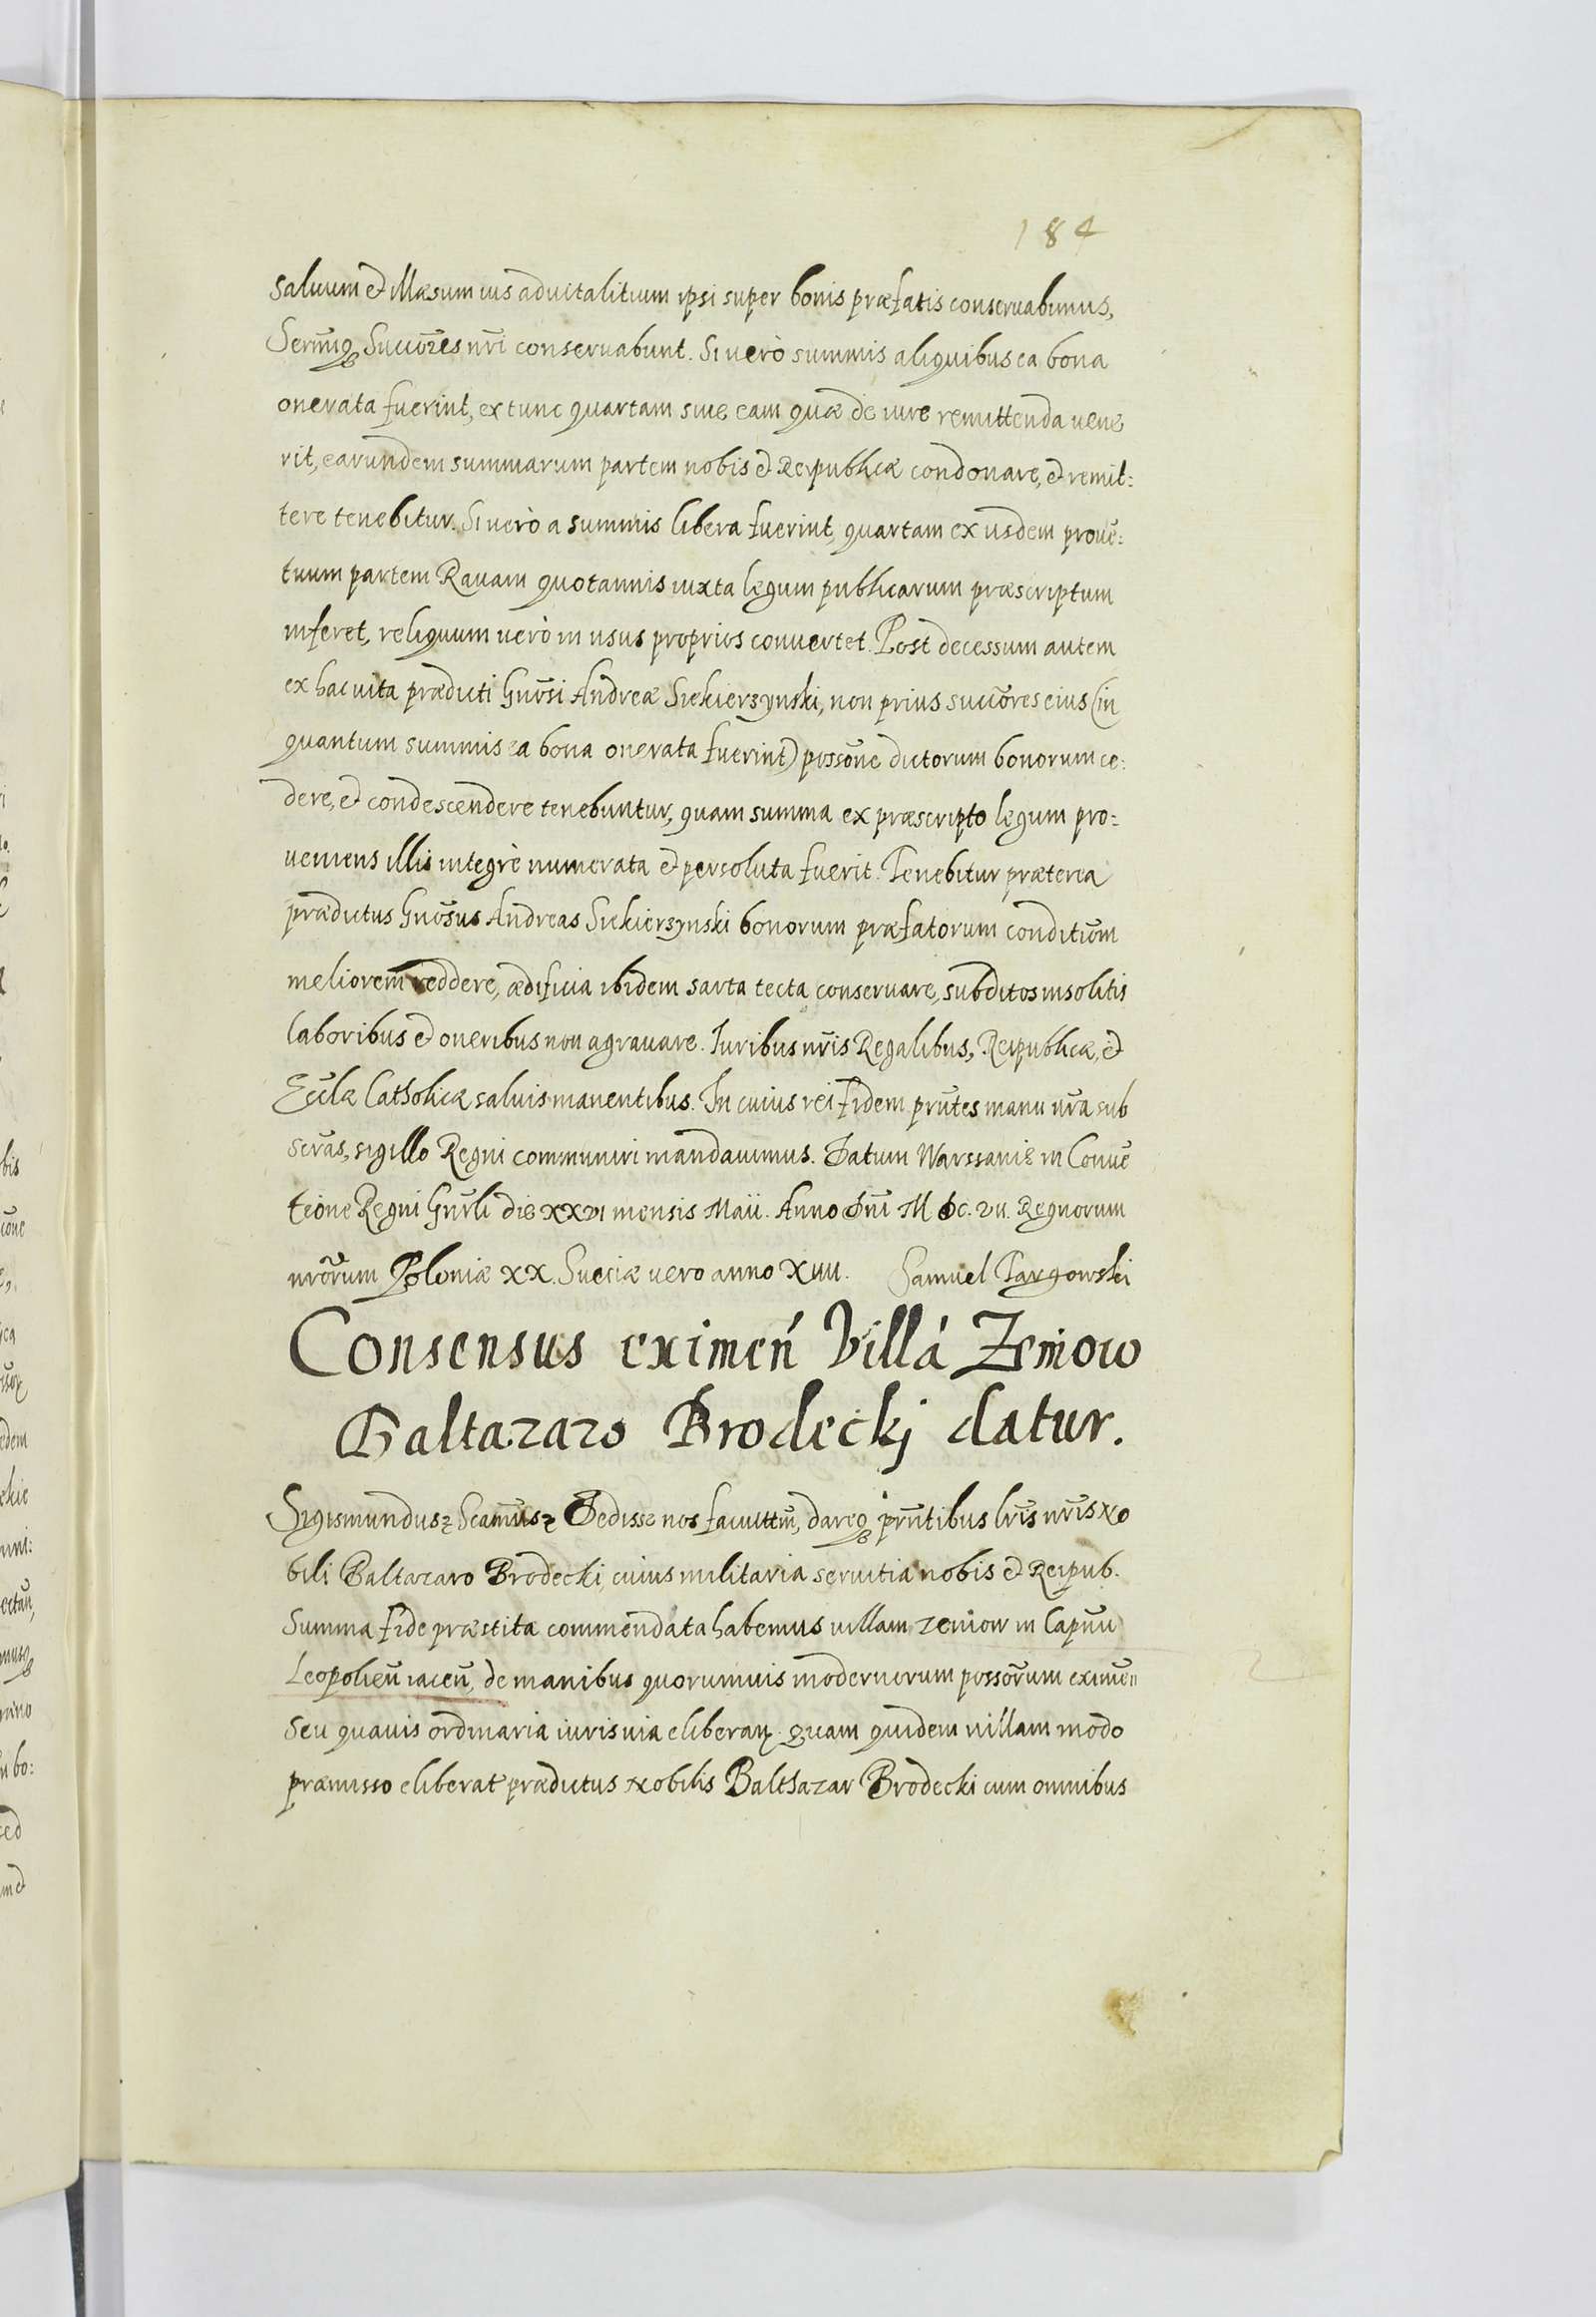 184
saluum et illæsum ius aduitalitium ipsi super bonis præfatis conseruabimus,
Sermiq̃ Succõres nr̃i conseruabunt. Si uerò summis aliquibus ea bona
onerata fuerint, ex tunc quartam siue eam quæ de iure remittenda uene
rit, earundem summarum partem nobis et Reipublicæ condonare, et remit:
tere tenebitur. Si uerò a summis libera fuerint, quartam ex iisdem prouẽ:
tuum partem Rauam quotannis iuxta legum publicarum præscriptum
inferet, reliquum uerò in usus proprios conuertet. Post decessum autem
ex hac uita prædicti Gnõsi Andreæ Siekierzynski, non prius succõres eius (in
quantum summis ea bona onerata fuerint) possõne dictorum bonorum ce:
dere, et condescendere tenebuntur, quam summa ex præscripto legum pro:
ueniens illis integrè numerata et persoluta fuerit. Tenebitur præterea
prædictus Gnõsus Andreas Siekierzynski bonorum præfatorum conditiõm
meliorem reddere, ædificia ibidem sarta tecta conseruare, subditos insolitis
laboribus et oneribus non agrauare. Iuribus nr̃is Regalibus, Reipublicæ, et
Eccl̃æ Catholicæ saluis manentibus. In cuius rei fidem prñtes manu nr̃a sub
scr̃as, sigillo Regni communiri mandauimus. Datum Warssauiæ in Conuẽ
tione Regni Gnr̃li die XXVI mensis Maii. Anno Dñi M DC. VII. Regnorum
nrõrum Poloniæ XX. Sueciæ uero anno XIIII. Samuel Targowski
Consensus eximeń Villá Zeniow
Baltazaro Brodeckj datur.
Sigismundus ꝛ Scãmus ꝛ Dedisse nos facultt̃m, dareq̃ prñtibus lr̃is nr̃is No
bili Baltazaro Brodecki, cuius militaria seruitia nobis et Reipub.
Summa fide præstita commendata habemus uillam Zeniow in Capnũ
Leopolieñ iaceñ, de manibus quorumuis modernorum possõrum eximẽn
seu quauis ordinaria iuris uia eliberan. Quam quidem uillam modo
præmisso eliberat prædictus Nobilis Balthazar Brodecki cum omnibus